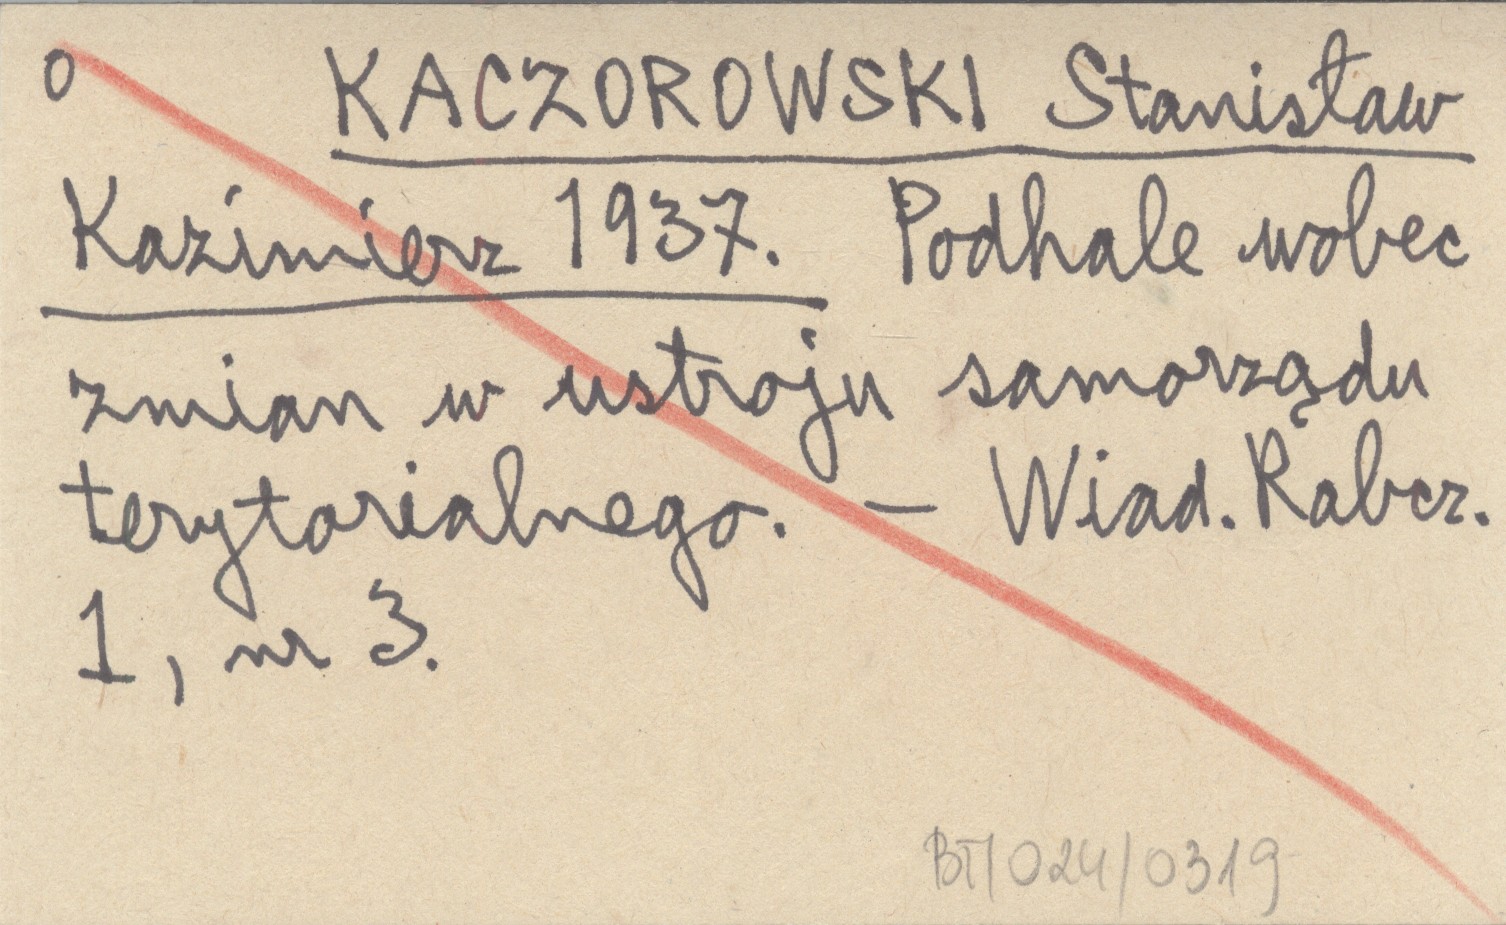 o KACZOROWSKI Stanisław
Kazimierz 1937. Podhale wobec
zmian w ustroju samorządu
terytorialnego. – Wiad. Rabcz.
1, nr 3.
BT/024/0319